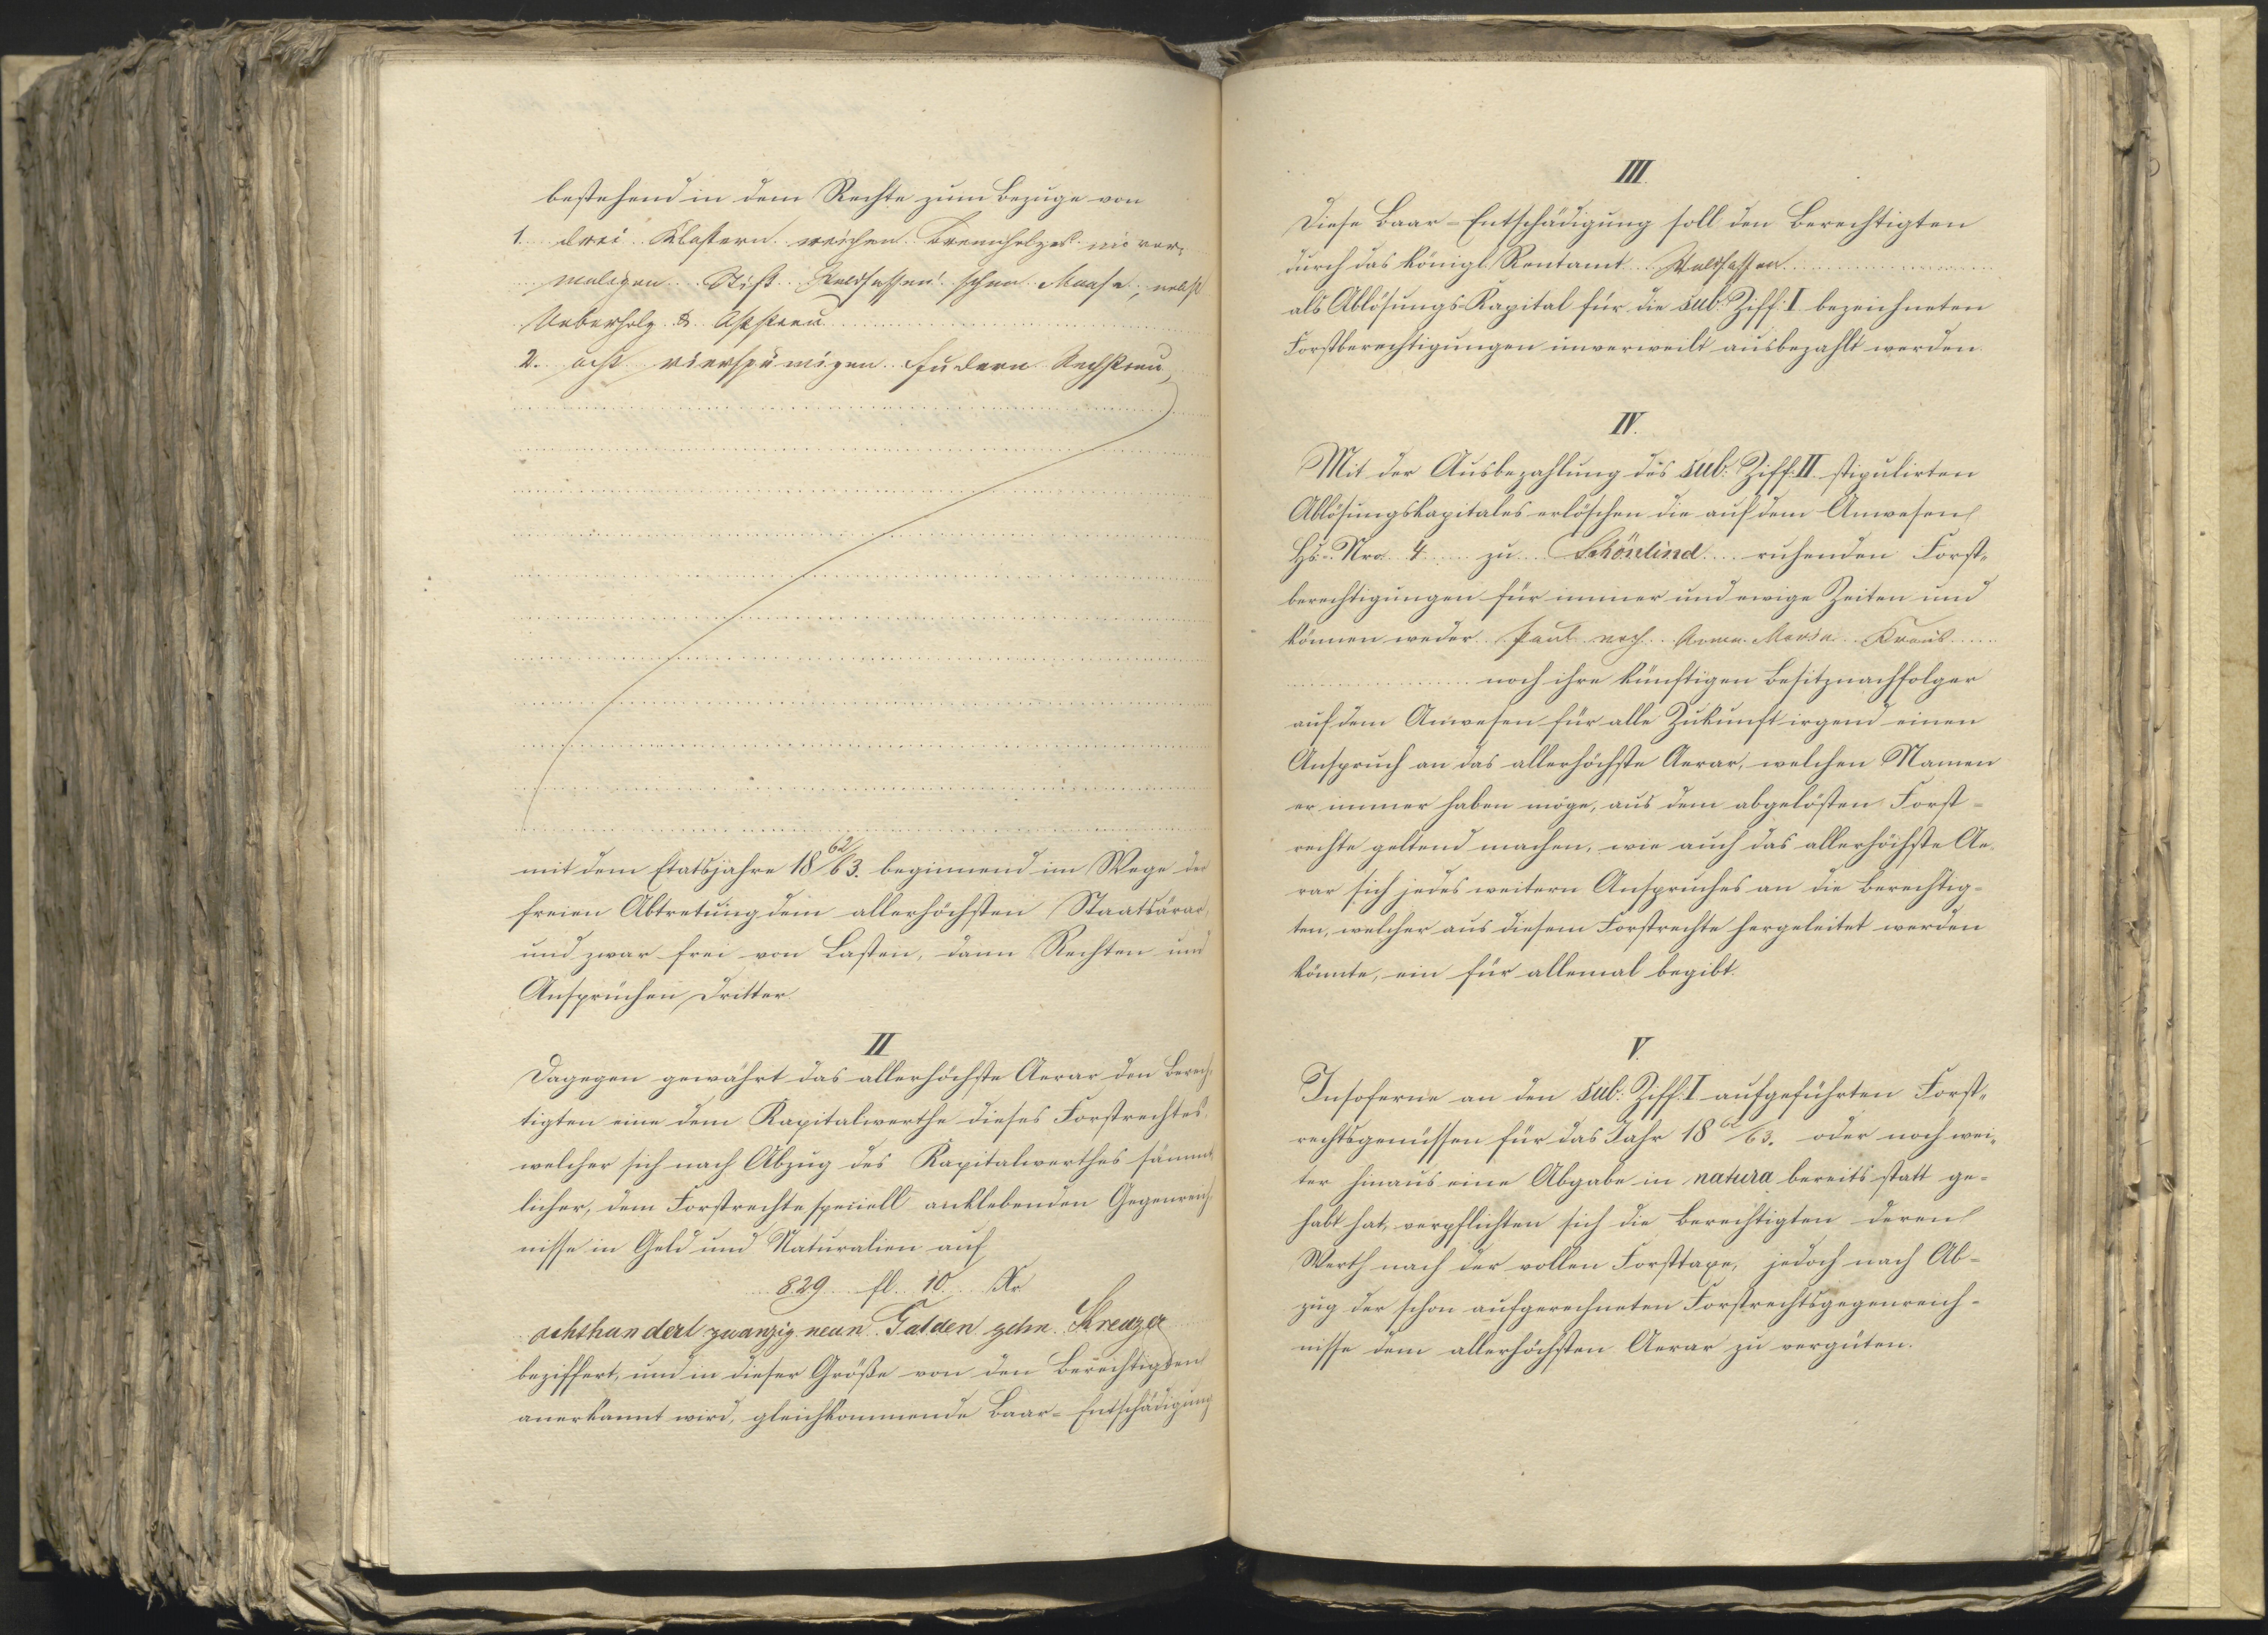 bestehend in dem Rechte zum Bezuge von
1. drei Klaftern weichen Brennholzes im vor„
maligen Stift Waldsassen'schen Maaße, nebst
Ueberholz & Aststreu
2. acht vierspännigen Fudern Rechstreu,
mit dem Etatsjahre 18 62/63. beginnend im Wege der
freien Abtretung dem allerhöchsten Staatsärar,
und zwar frei von Lasten, dann Rechten und
Ansprüchen Dritter.
II
Dagegen gewährt das allerhöchste Aerar den Berech„
tigten eine dem Kapitalwerthe dieses Forstrechtes,
welcher sich nach Abzug des Kapitalwerthes sämmt„
licher, dem Forstrechte speciell anklebenden Gegenreich„
nisse in Geld und Naturalien auf
829 fl. 10. Kr
achthundert zwanzig neun Gulden zehn Kreuzer
beziffert, und in dieser Größe von den Berechtigten
anerkannt wird, gleichkommende Baar-Entschädigung
III.
Diese Baar-Entschädigung soll den Berechtigten
durch das königl. Rentamt Waldsassen
als Ablösungs-Kapital für die sub. Ziff. I bezeichneten
Forstberechtigungen unverweilt ausbezahlt werden.
IV.
Mit der Ausbezahlung des sub. Ziff. II. stipulirten
Ablösungskapitales erlöschen die auf dem Anwesen
Hs.-Nro. 4 zu Schönlind ruhenden Forst„
berechtigungen für immer und ewige Zeiten und
können weder Paul noch Anna Maria Kraus
noch ihre künftigen Besitznachfolger
auf dem Anwesen für alle Zukunft irgend einen
Anspruch an das allerhöchste Aerar, welchen Namen
er immer haben möge, aus dem abgelösten Forst-
rechte geltend machen, wie auch das allerhöchste Ae-
rar sich jedes weitern Anspruches an die Berechtig-
ten, welcher aus diesem Forstrechte hergeleitet werden
könnte, ein für allemal begibt.
V.
Insoferne an den sub. Ziff. I aufgeführten Forst„
rechtsgenüssen für das Jahr 18 62/63. oder noch wei„
ter hinaus eine Abgabe in natura bereits statt ge-
habt hat, verpflichten sich die Berechtigten deren
Werth nach der vollen Forsttaxe, jedoch nach Ab-
zug der schon aufgerechneten Forstrechtsgegenreich-
nisse dem allerhöchsten Aerar zu vergüten.